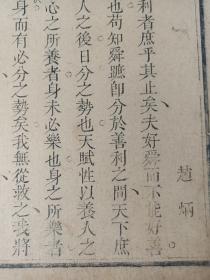 趙炳
利者庶乎其止矣夫好舜而不能好善
也苟知舜蹠卽分於善利之間天下庶
人之後日分之勢也天賦性以養人之
心之所養者身未必樂也身之所樂者
身而有必分之勢矣我無從救之我將